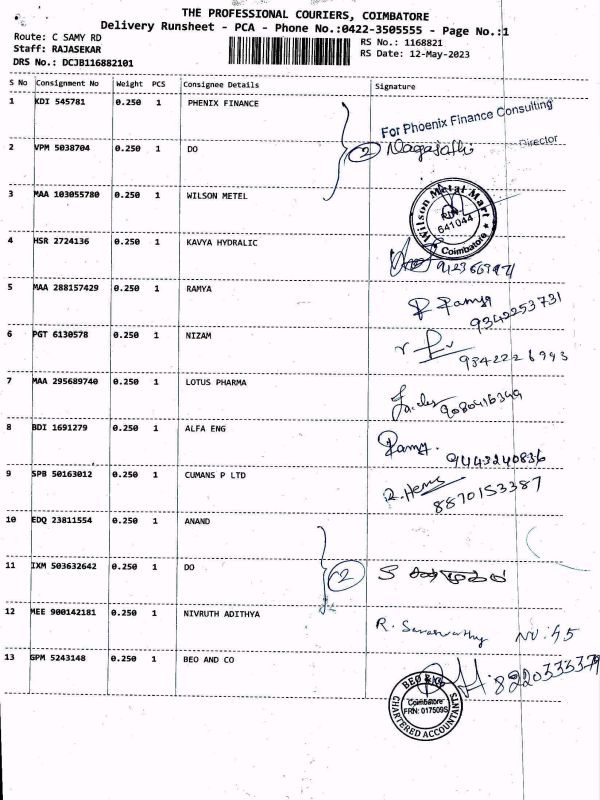 THE PROFESSIONAL COURIERS, COIMBATORE
Delivery Runsheet - PCA - Phone No.:0422-3505555 - Page No.:1
Route: C SAMY RD
RS No.: 1168821
Staff: RAJASEKAR
RS Date: 12-May-2023
DRS No.: DCJB116882101
S No Consignment No Weight PCS Consignee Details Signature
1 KDI 545781 0.250 1 PHENIX FINANCE
For Phoenix Finance Consulting
2 VPM 5038704 0.250 1 DO 2 Nagajothi Director
3 MAA 103055780 0.250 1 WILSON METEL
Wilson Metal Mart
PIN
641044
Coimbatore
4 HSR 2724136 0.250 1 KAVYA HYDRALIC
5 MAA 288157429 0.250 1 RAMYA
Ramya
9342253731
6 PGT 6130578 0.250 1 NIZAM
9342226993
7 MAA 295689740 0.250 1 LOTUS PHARMA
9080416349
8 BDI 1691279 0.250 1 ALFA ENG
9443240836
9 SPB 50163012 0.250 1 CUMANS P LTD
R. Hema
8870153387
10 EDQ 23811554 0.250 1 ANAND
11 IXM 503632642 0.250 1 DO 2
12 MEE 900142181 0.250 1 NIVRUTH ADITHYA
R. Saraswathy NO. 45
13 GPM 5243148 0.250 1 BEO AND CO
8220333379
Coimbatore
FRN: 017509S
CHARTERED ACCOUNTANTS